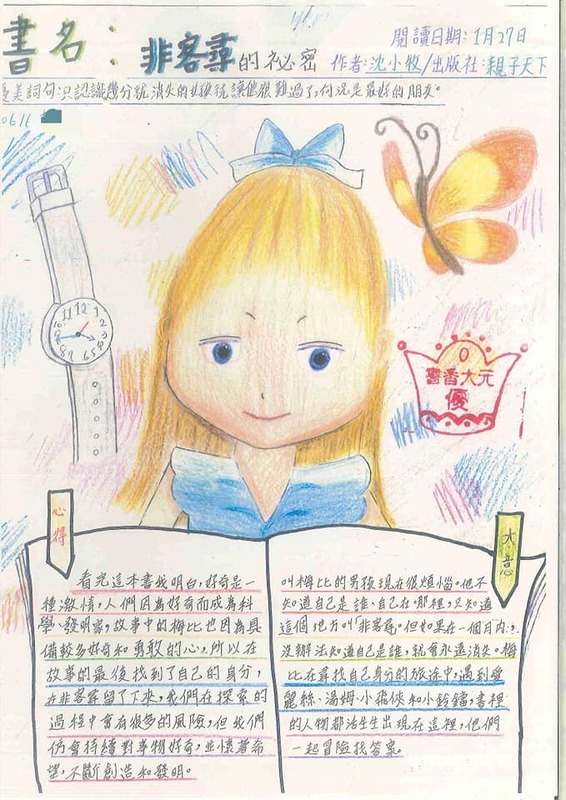 書名：非客尋的祕密
閱讀日期：1月27日
作者：沈小牧/出版社：親子天下
優美詞句：只認識幾分就消失的女孩就讓他很難過了，何況是最好的朋友。
12
1
2
3
書香大元
優
心得
看完這本書我明白，好奇是一
種激情，人們因為好奇而成為科
學、發明家，故事中的梅比也因為具
備較多好奇和勇敢的心，所以在
故事的最後找到了自己的身分，
在非客尋留了下來，我們在探索的
過程中會有很多的風險，但我們
仍會持續對事物好奇，並懷著希
望，不斷創造和發明。
大意
叫梅比的男孩現在很煩惱。他不
知道自己是誰、自己在哪裡，只知道
這個地方叫「非客尋」。但如果在一個月內，
沒辦法知道自己是誰，就會永遠消失。梅
比在尋找自己身分的旅途中，遇到愛
麗絲、湯姆、小飛俠和小鈴鐺，書裡
的人物都活生生出現在這裡，他們
一起冒險找答案。